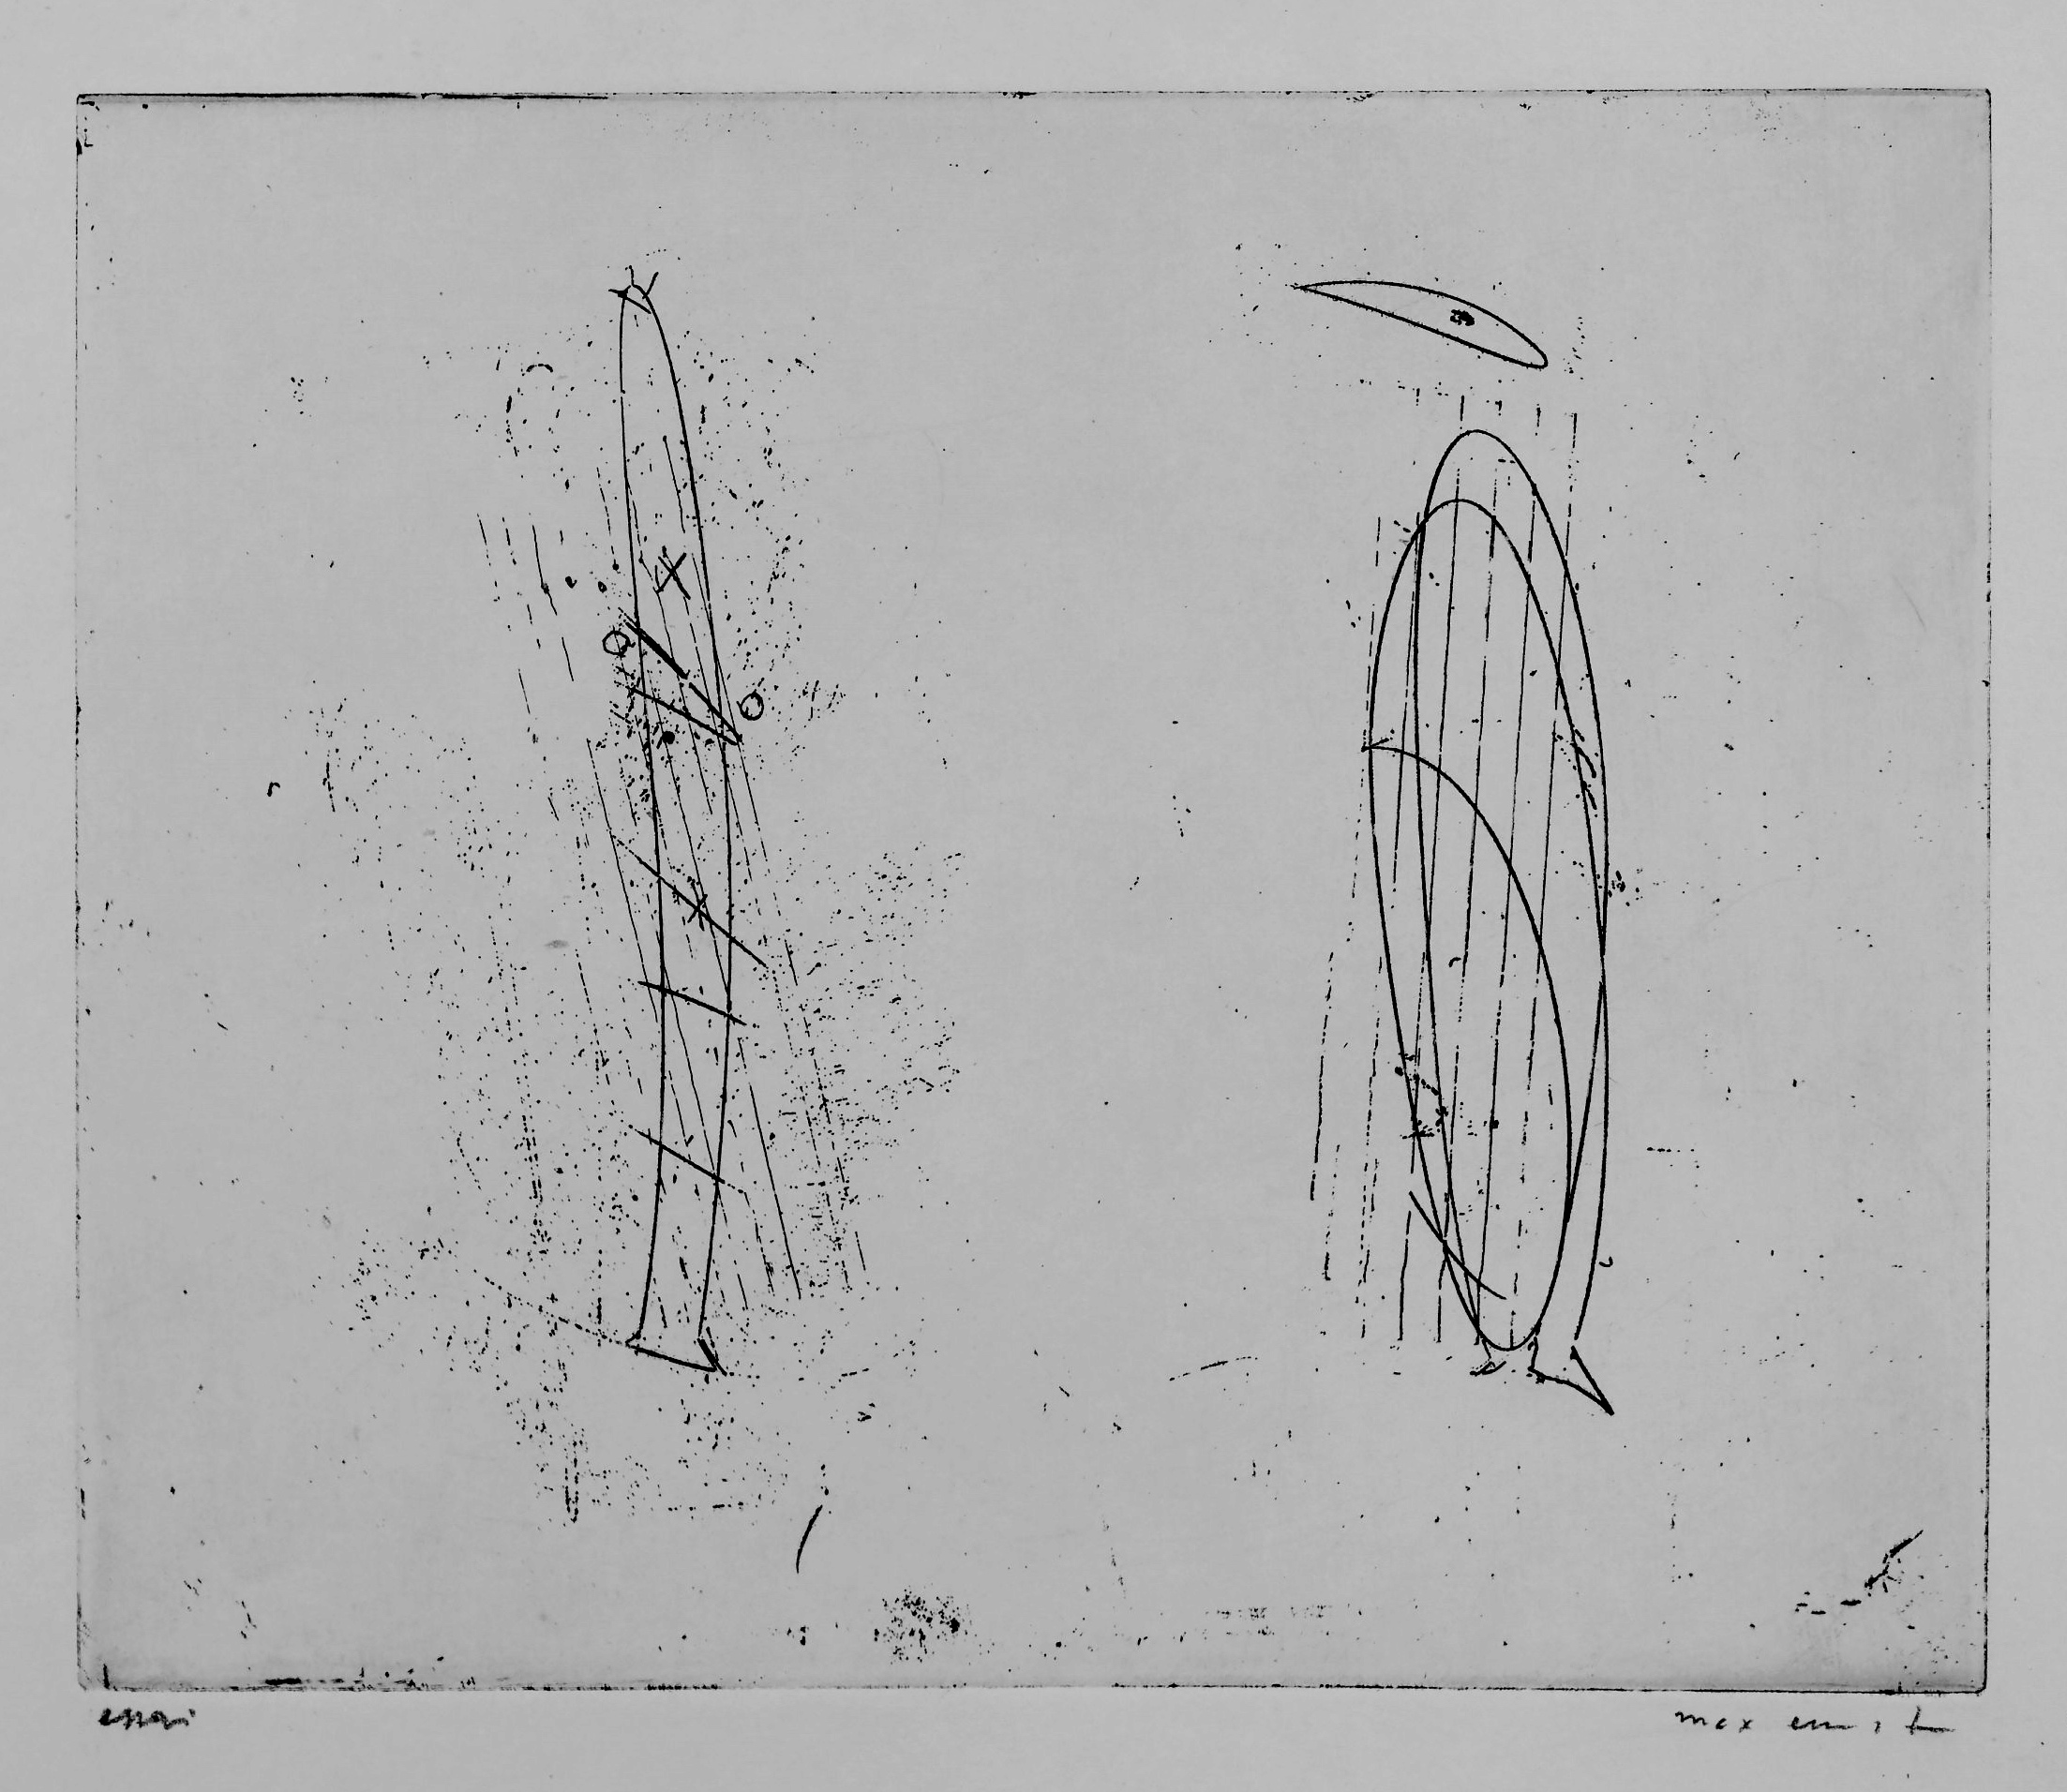 essai
max ernst